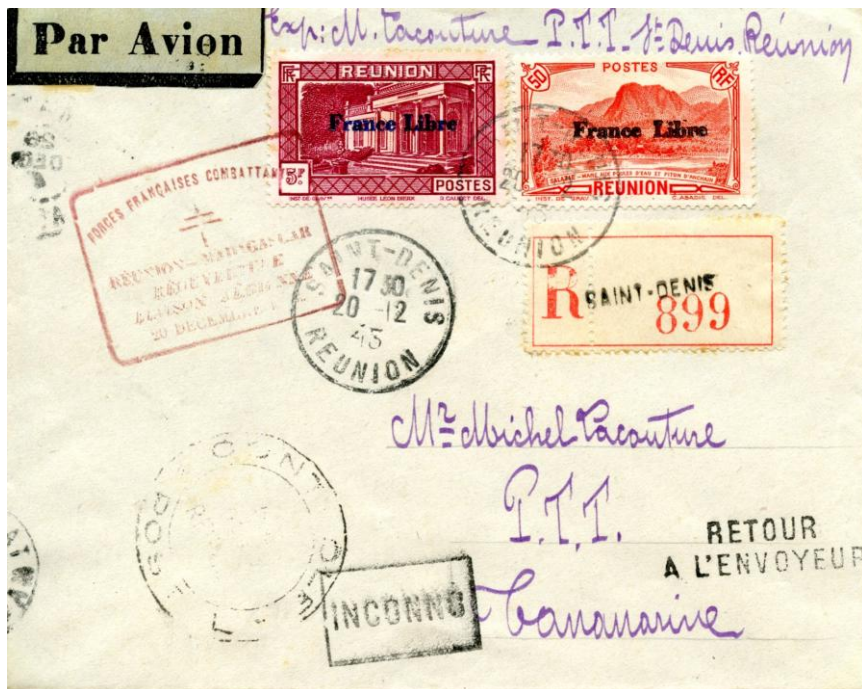 Par Avion
Exp: M. Lacouture P.T.T. St Denis. Réunion
RF REUNION RF
France Libre
5F.
POSTES
MUSEE LÉON DIERX
POSTES
50 RF
France Libre
REUNION
FORCES FRANÇAISES COMBATTAN
RÉUNION-MADAGASCAR
LIAISON AÉRIENNE
20 DECEMBRE
SAINT-DENIS
17 30
20 -12
43
REUNION
17 30
20
REUNION
R SAINT-DENIS
899
Mr Michel Lacouture
P.T.T.
Tananarive
RETOUR
A L'ENVOYEUR
INCONNU